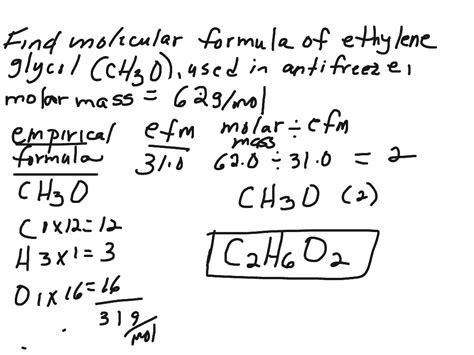 Find molicular formula of ethylene
glycol (CH3O), used in antifreeze,
molar mass = 62g/mol
empirical efm molar ÷ efm
formula 31.0 mass
62.0 ÷ 31.0 = 2
CH3O CH3O (2)
C 1x12=12
H 3x1=3 C2H6O2
O 1x16=16
31g/mol